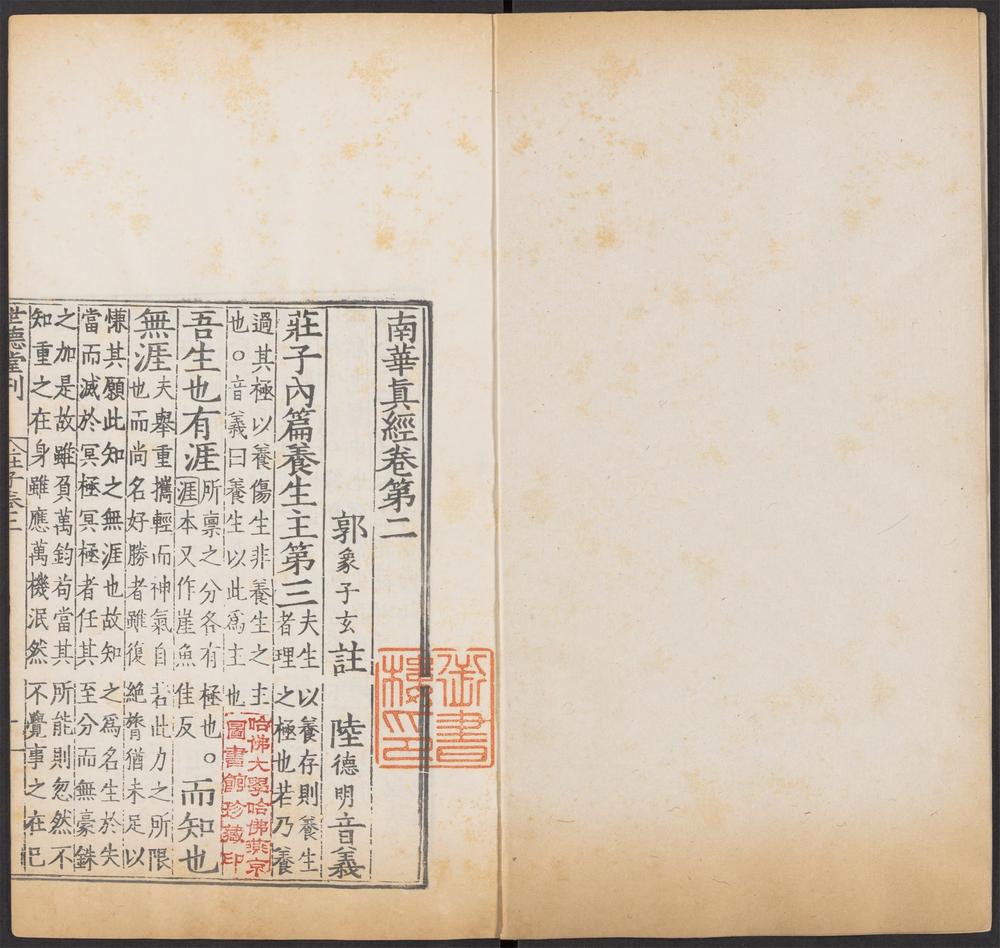 南華眞經卷第二
郭象子玄註 陸德明音義
莊子內篇養生主第三 夫生以養存則養生
者理之極也若乃養
過其極以養傷生非養生之主
也○音義曰養生以此爲主也
吾生也有涯 所稟之分各有極也。
涯本又作崖魚佳反
而知也
無涯 夫舉重攜輕而神氣自若此力之所限
也而尚名好勝者雖復絶膂猶未足以
慊其願此知之無涯也故知之爲名生於失
當而滅於冥極冥極者任其至分而無豪銖
之加是故雖負萬鈞茍當其所能則忽然不
知重之在身雖應萬機泯然不覺事之在已
世德堂刊
莊子卷二
一
御書樓印
哈佛大學哈佛燕京
圖書館珍藏印